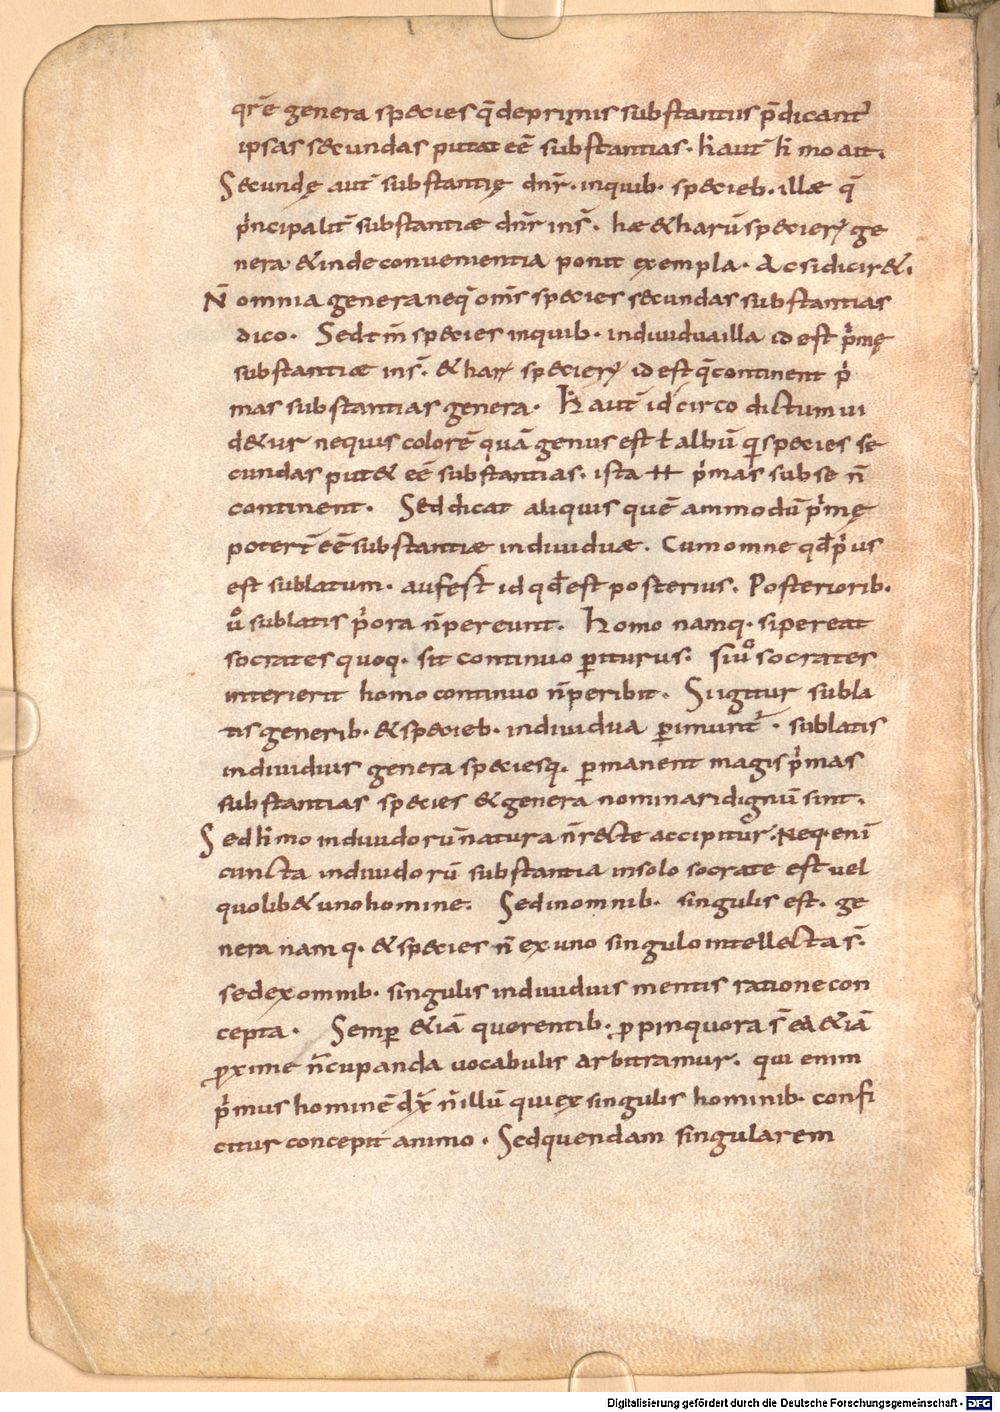 qrē genera species quę̄ de primis substantiis p̄dicant᷑
ipsas secundas putat eē substantias. h̓ aut̄ h̓ mo ait.
Secundę aut̄ substantię dnr̄. inquib. specieb. illæ q̄
prı̓ncipalit̄ substantiæ dnr̄ ins̄. hæ & harū specierꝝ ge
nera & inde convenientia ponit exempla. Ac si dicir&.
N̄ omnia genera neq; om̄s species secundas substantias
dico. Sed t̄m species inquib. individua illa id est pı̓mę
substantiæ ins̄. & harꝝ specierꝝ id est quę̄ continent pı̓
mas substantias genera. H̓ aut̄ idcirco dictum vi
d&ur nequis colorē quā genus est ł albū qı species se
cundas put& eē substantias. ista ⁊⁊ pı̓mas sub se n̄
continent. Sed dicat aliquis quē ammodū pı̓mę
poter̄ eē substantiæ individuæ. Cum omne qđ pı̓us
est sublatum. aufert id qđ est posterius. Posteriorib.
ů sublatis pı̓ora n̄ pereunt. Homo namq. si pereat
socrates quoq. sit continuo ꝑiturus. si ůo socrates
interierit homo continuo n̄ peribit. Si igitur subla
tis generib. & specieb. individua ꝑimunt᷑. sublatis
individuis genera speciesq. ꝑmanent magis pı̓mas
substantias species & genera nominari dignū sint.
Sed h̓ mo individorū natura n̄ recte accipitur. Neq. enī
cuncta individorū substantia in solo socrate est vel
quolib& uno homine. Sed in omnib. singulis est. ge
nera namq. & species n̄ ex uno singulo intellecta s̄.
sed ex omnib. singulis individuis mentis ratione con
cepta. Semꝑ &iā quorentib. ꝓpinquora s̄ ea &iā
ꝓxime n̄cupanda vocabulis arbitramur. qui enim
pı̓mus hominē dx̄ n̄ illū qui ex singulis hominib. confi
citur concepit animo. Sed quendam singularem
Digitalisierung gefördert durch die Deutsche Forschungsgemeinschaft - DFG